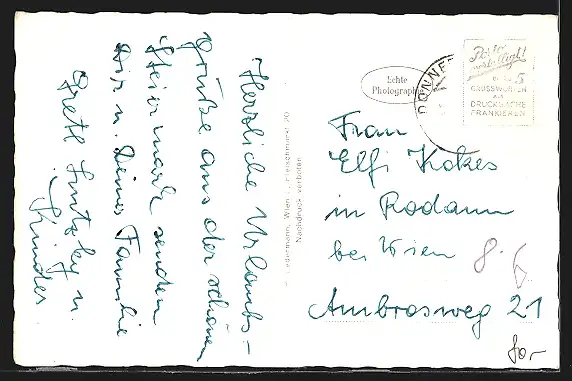 Herzliche Urlaubs-
grüße aus der schönen
Steiermark senden
Dir u. Deiner Familie
Gretl u.
Kinder
Ledermann, Wien I., Fleischmarkt 20
Nachdruck verboten
Echte
Photographie
5
GRUSSWORTEN
ALS
DRUCKSACHE
FRANKIEREN
Frau
Elfi Kokes
in Rodaun
bei Wien
Ambrosweg 21
80,-